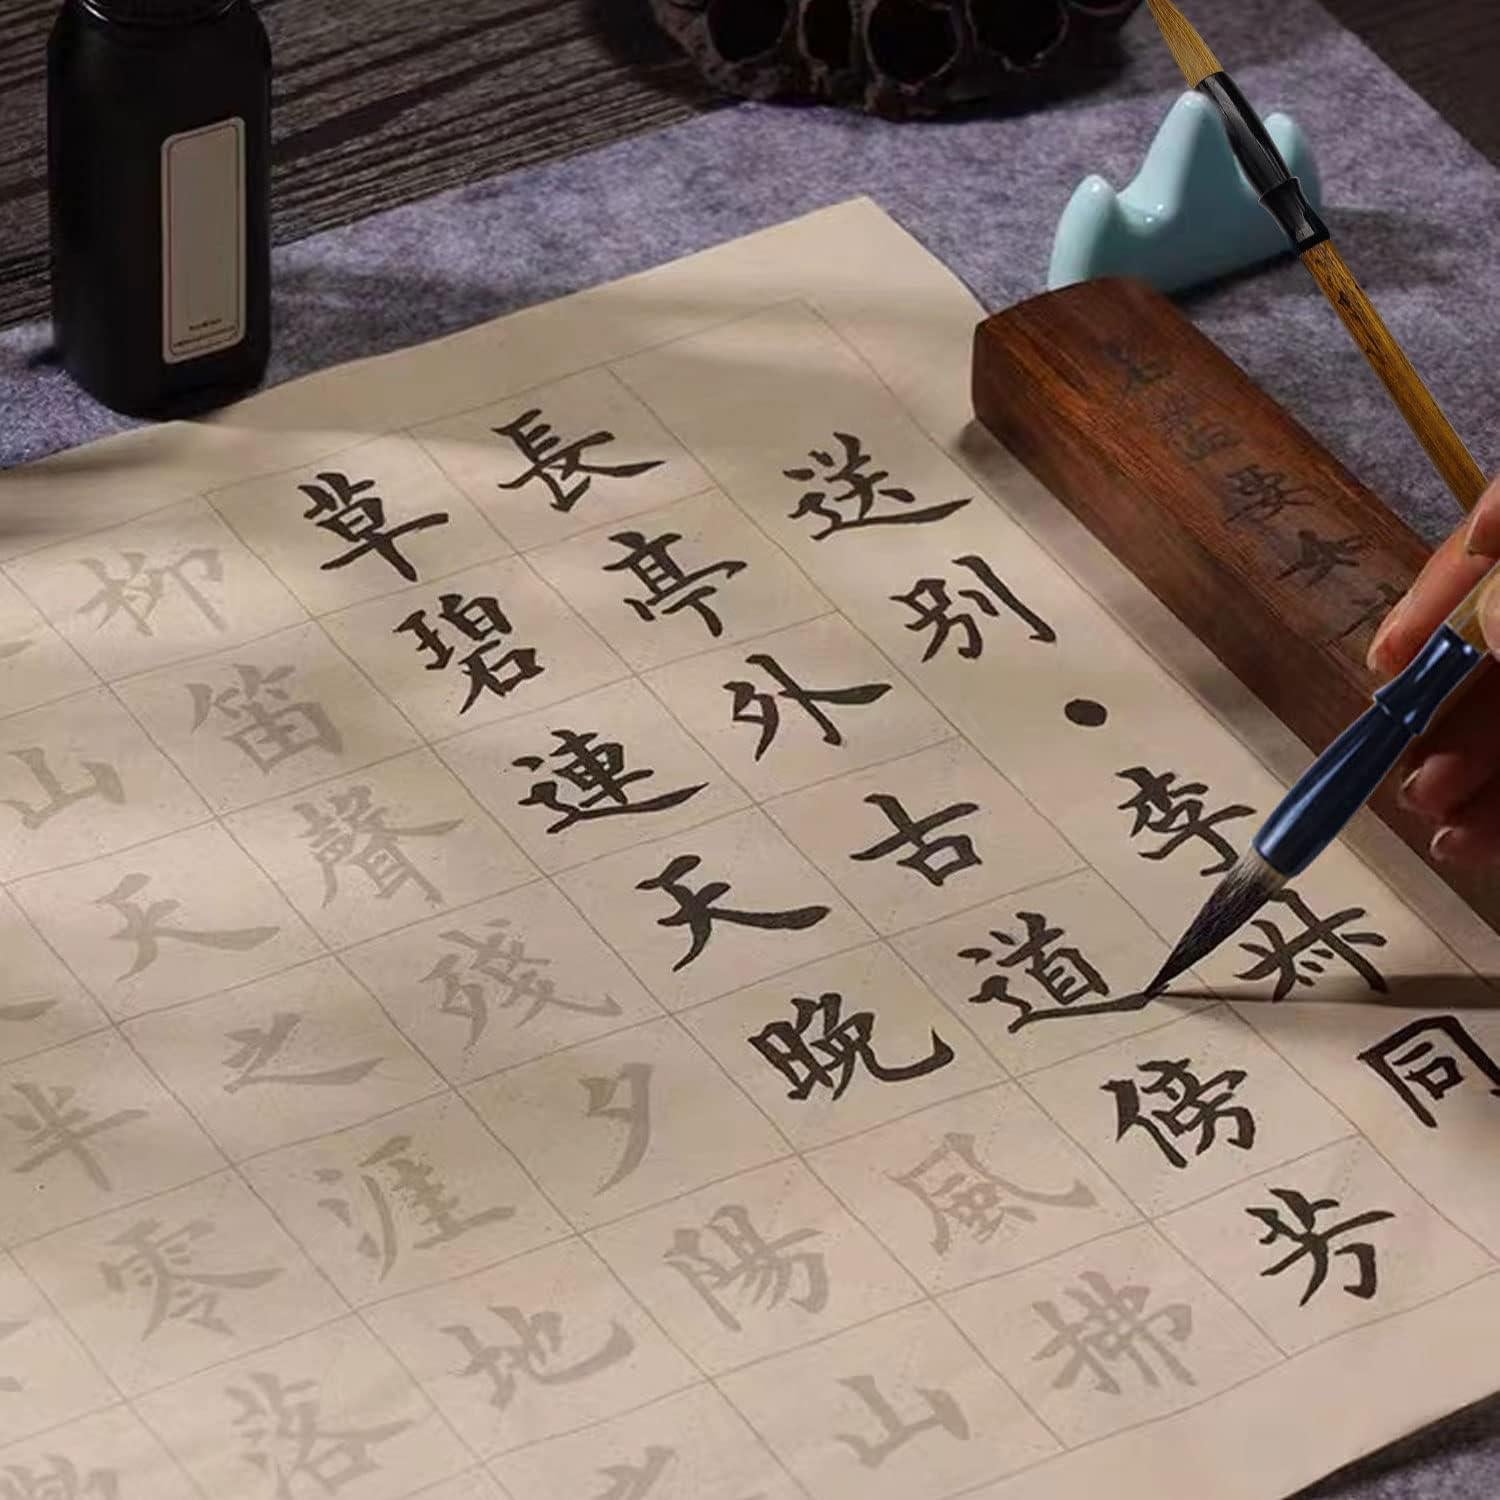 送別·李叔同
長亭外古道傍芳
草碧連天晚風拂
柳笛聲殘夕陽山
山天之涯地
半零落